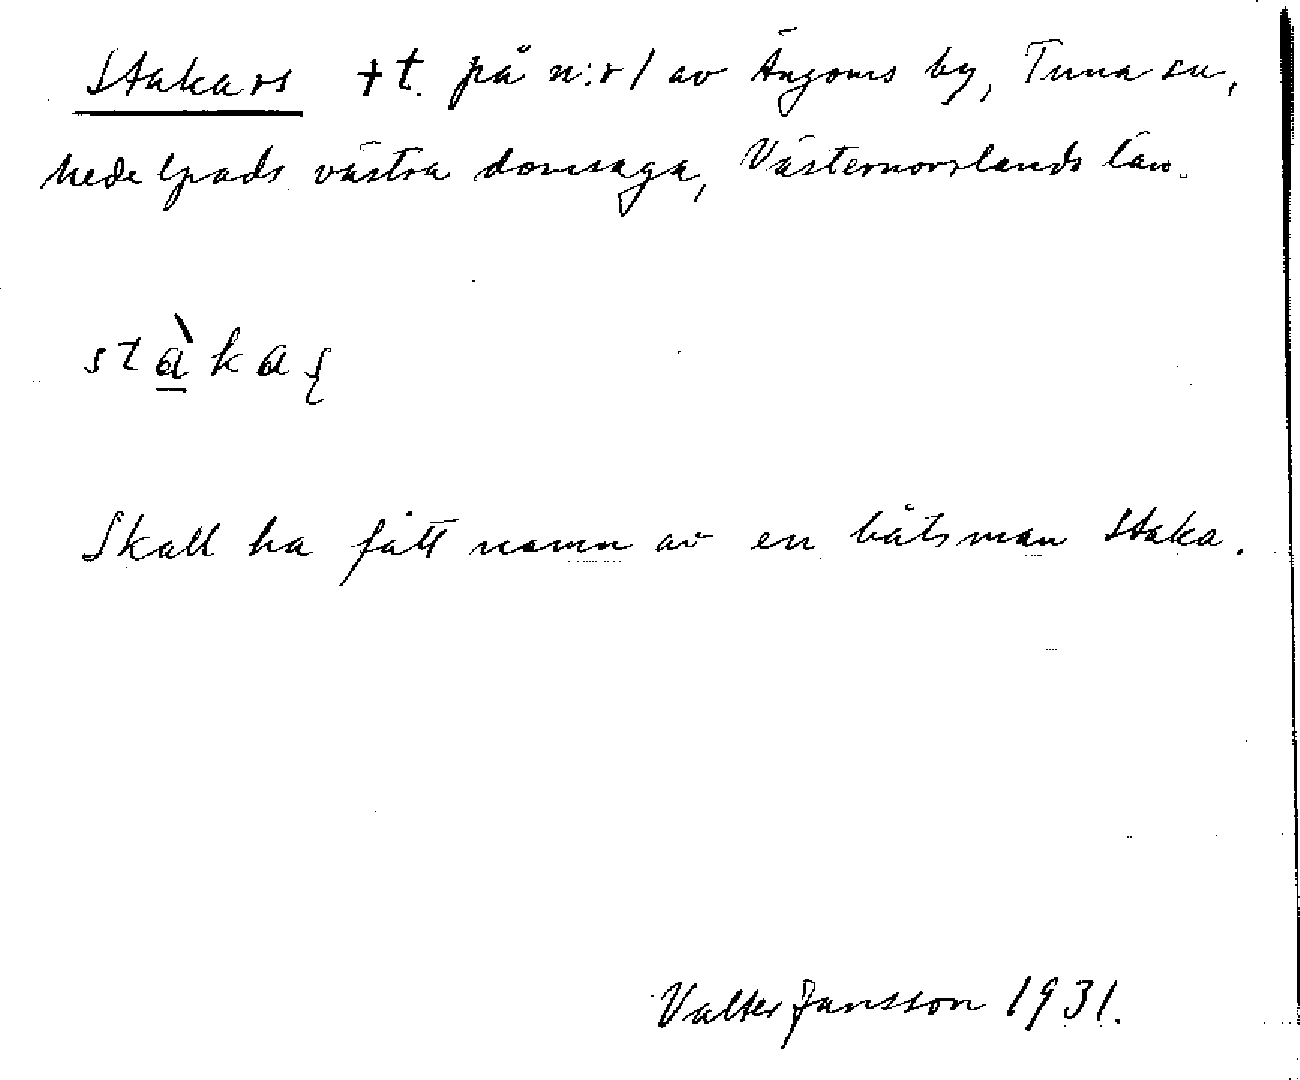 Stakars †t. på n:r 1 av Ängoms by, Tuna sn,
Medelpads västra domsaga, Västernorrlands län.
stàkaş
Skall ha fått namn av en båtsman Staka.
Valter Jansson 1931.